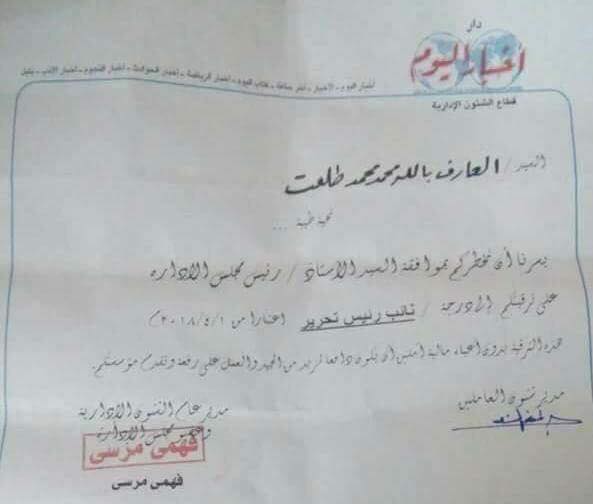 دار
أخبار اليوم
قطاع الشئون الإدارية
أخبار اليوم - الأخبار - آخر ساعة - كتاب اليوم - أخبار الرياضة - أخبار الحوادث - أخبار النجوم - أخبار الأدب - بلبل
السيد / العارف بالله محمد محمد طلعت
تحية طيبة ...
يسرنا أن نخطركم بموافقة السيد الأستاذ / رئيس مجلس الإداره
على ترقيتكم إلى درجة / نائب رئيس تحرير اعتبارا من ٢٠١٨/٥/١م
هذه الترقية بدون أعباء مالية آملين أن يكون دافعا لمزيد من الجهد والعمل على رفعة وتقدم مؤسستكم.
مدير شئون العاملين
مدير عام الشئون الإدارية
وعضو مجلس الإدارة
فهمى مرسى
فهمى مرسى